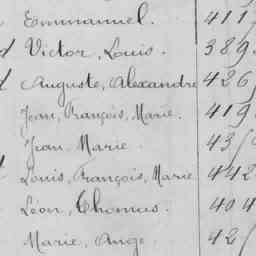 Emmanuel. 411
d Victor, Louis. 389
d Auguste, Alexandre 426
Jean, François, Marie. 419
Jean Marie. 43
Louis, François, Marie 442
Léon, Thomas. 404
Marie, Ange. 42